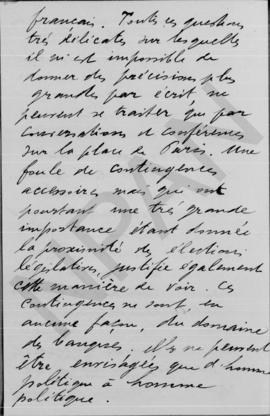 français. Toutes ces questions
très délicates sur lesquelles
il m'est impossible de
donner des précisions plus
grandes par écrit, ne
peuvent se traiter que par
conversations et conférences
sur la place de Paris. Une
foule de contingences
accessoires mais qui ont
pourtant une très grande
importance étant donnée
la proximité des élections
législatives, justifie également
cette manière de voir. Ces
contingences ne sont en
aucune façon, du domaine
des banques. Elles ne peuvent
être envisagées que d'homme
politique à homme
politique.